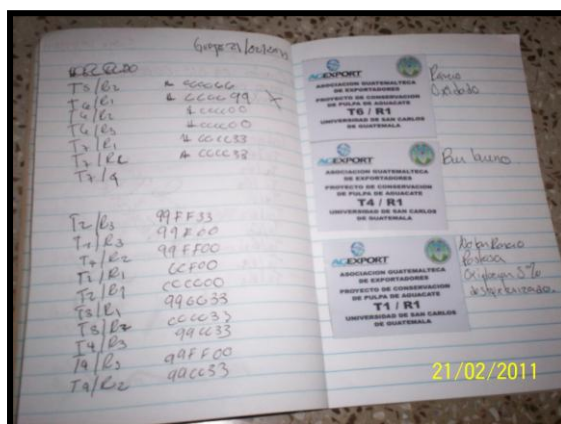 T5/R2 # CCCC66
T6/R1 # CCCC99 X
T6/R2 # CCCC00
T6/R3 # CCCC00
T7/R1 # CCCC33
T7/R2 # CCCC33
T2/R3 99FF33
99FF00
T4/R2 99FF00
T1/R1
T2/R1 CCCC00
T3/R1 996633
T3/R2 CCCC33
T4/R3 99CC33
99FF00
99CC33
AGEXPORT
ASOCIACION GUATEMALTECA
DE EXPORTADORES
PROYECTO DE CONSERVACION
DE PULPA DE AGUACATE
T6 / R1
UNIVERSIDAD DE SAN CARLOS
DE GUATEMALA
Rancio
Oxidado
AGEXPORT
ASOCIACION GUATEMALTECA
DE EXPORTADORES
PROYECTO DE CONSERVACION
DE PULPA DE AGUACATE
T4 / R1
UNIVERSIDAD DE SAN CARLOS
DE GUATEMALA
AGEXPORT
ASOCIACION GUATEMALTECA
DE EXPORTADORES
PROYECTO DE CONSERVACION
DE PULPA DE AGUACATE
T1 / R1
UNIVERSIDAD DE SAN CARLOS
DE GUATEMALA
Rancio
21/02/2011